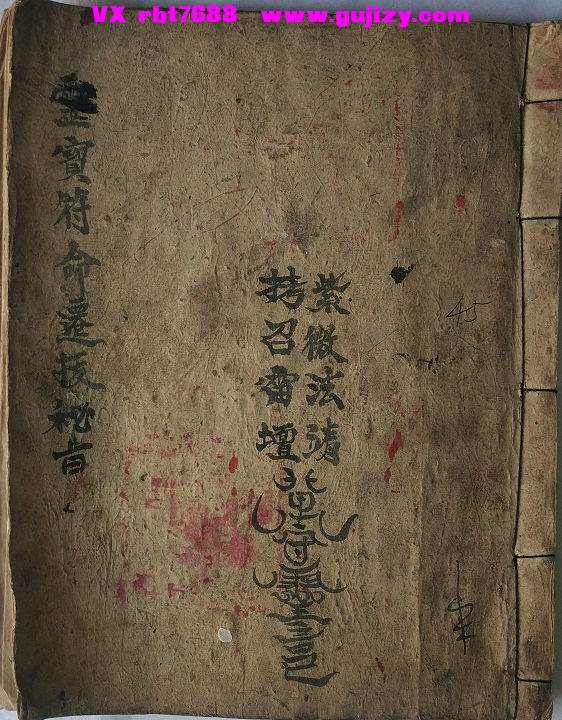 VX rbt7688 www.gujizy.com
紫微法靖
拷召雷壇
靈寶符命遷拔秘旨
45